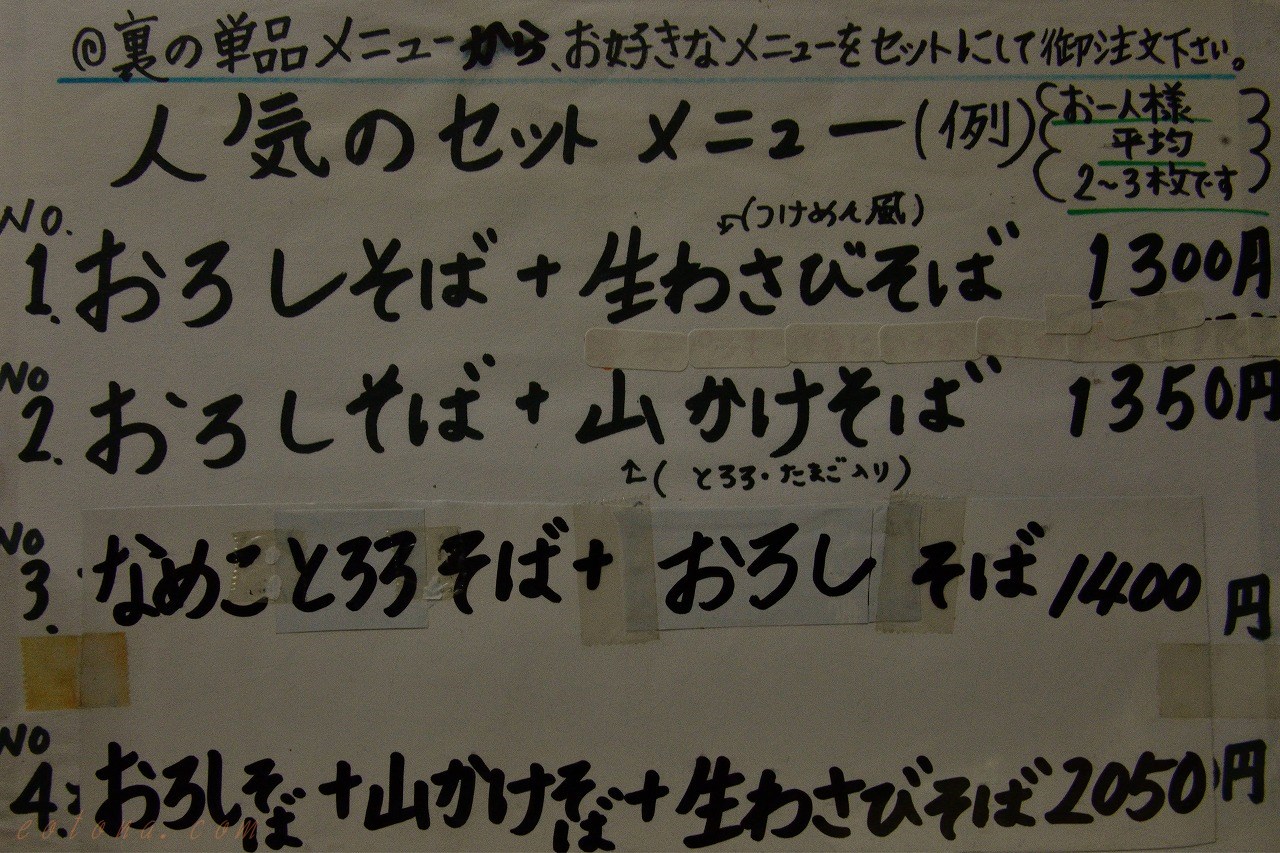 ◎裏の単品メニューから、お好きなメニューをセットにして御注文下さい。
人気のセットメニュー(例)
お一人様
平均
2〜3枚です
(つけめん風)
NO.1. おろしそば+生わさびそば 1300円
NO2. おろしそば+山かけそば 1350円
(とろろ・たまご入り)
NO3. なめことろろそば+おろしそば 1400円
NO4. おろしそば+山かけそば+生わさびそば 2050円